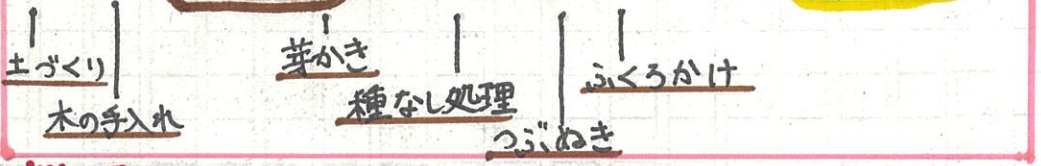 土づくり
木の手入れ
芽かき
種なし処理
つぶぬき
ふくろかけ